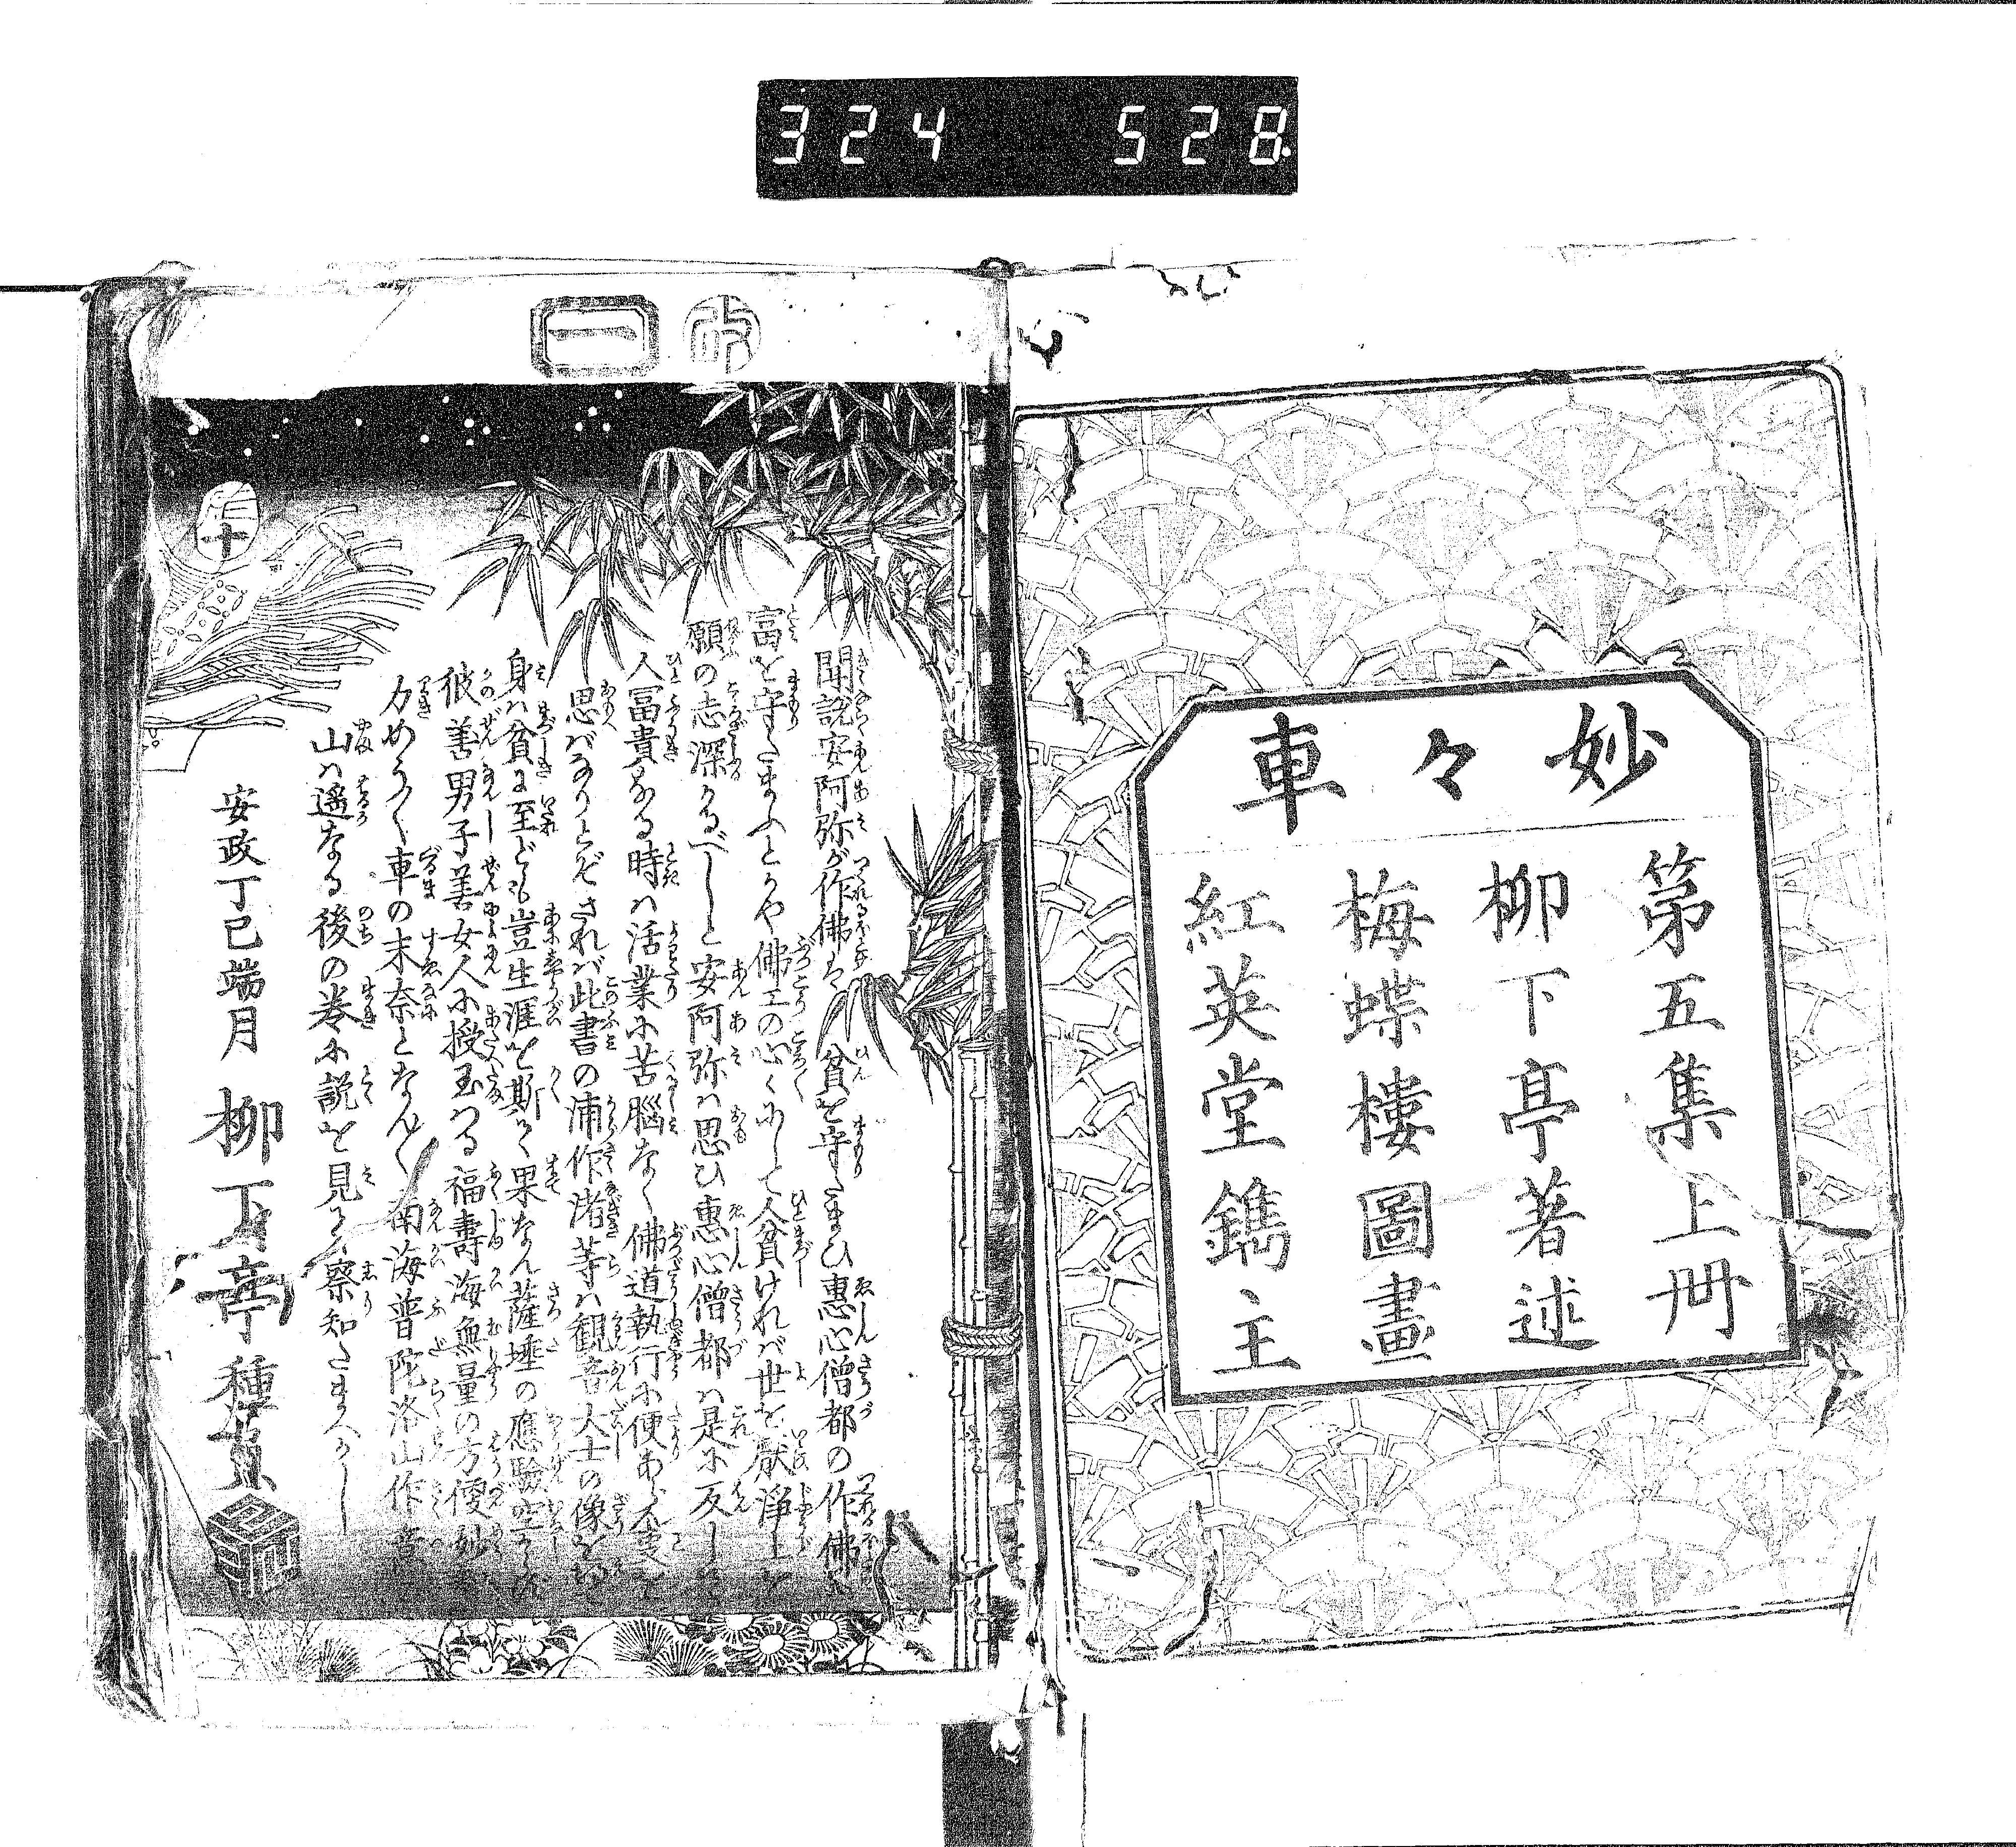 324 528
妙々車
第五集上冊
柳下亭著述
梅蝶樓圖畫
紅英堂鐫主
改
一
聞説安阿弥が作佛は貧を守たまひ惠心僧都の作佛は
富を守たまふとかや佛工の心くにして人貧ければ世を厭浄土を
願の志深かるべしと安阿弥は思ひ惠心僧都は是に反し
人冨貴なる時は活業に苦腦なく佛道執行に便あらん
思ばなりとぞされば此書の浦作渚等は観音大士の像を
身は貧に至ども豈生涯を斯く果なん薩埵の應驗空
彼善男子善女人に授玉はる福壽海無量の方便妙
力めぐる車の末奈となん南海普陀洛山作
山は遥なる後の巻に説を見て察知たまへかし
安政丁巳端月
柳下亭種員